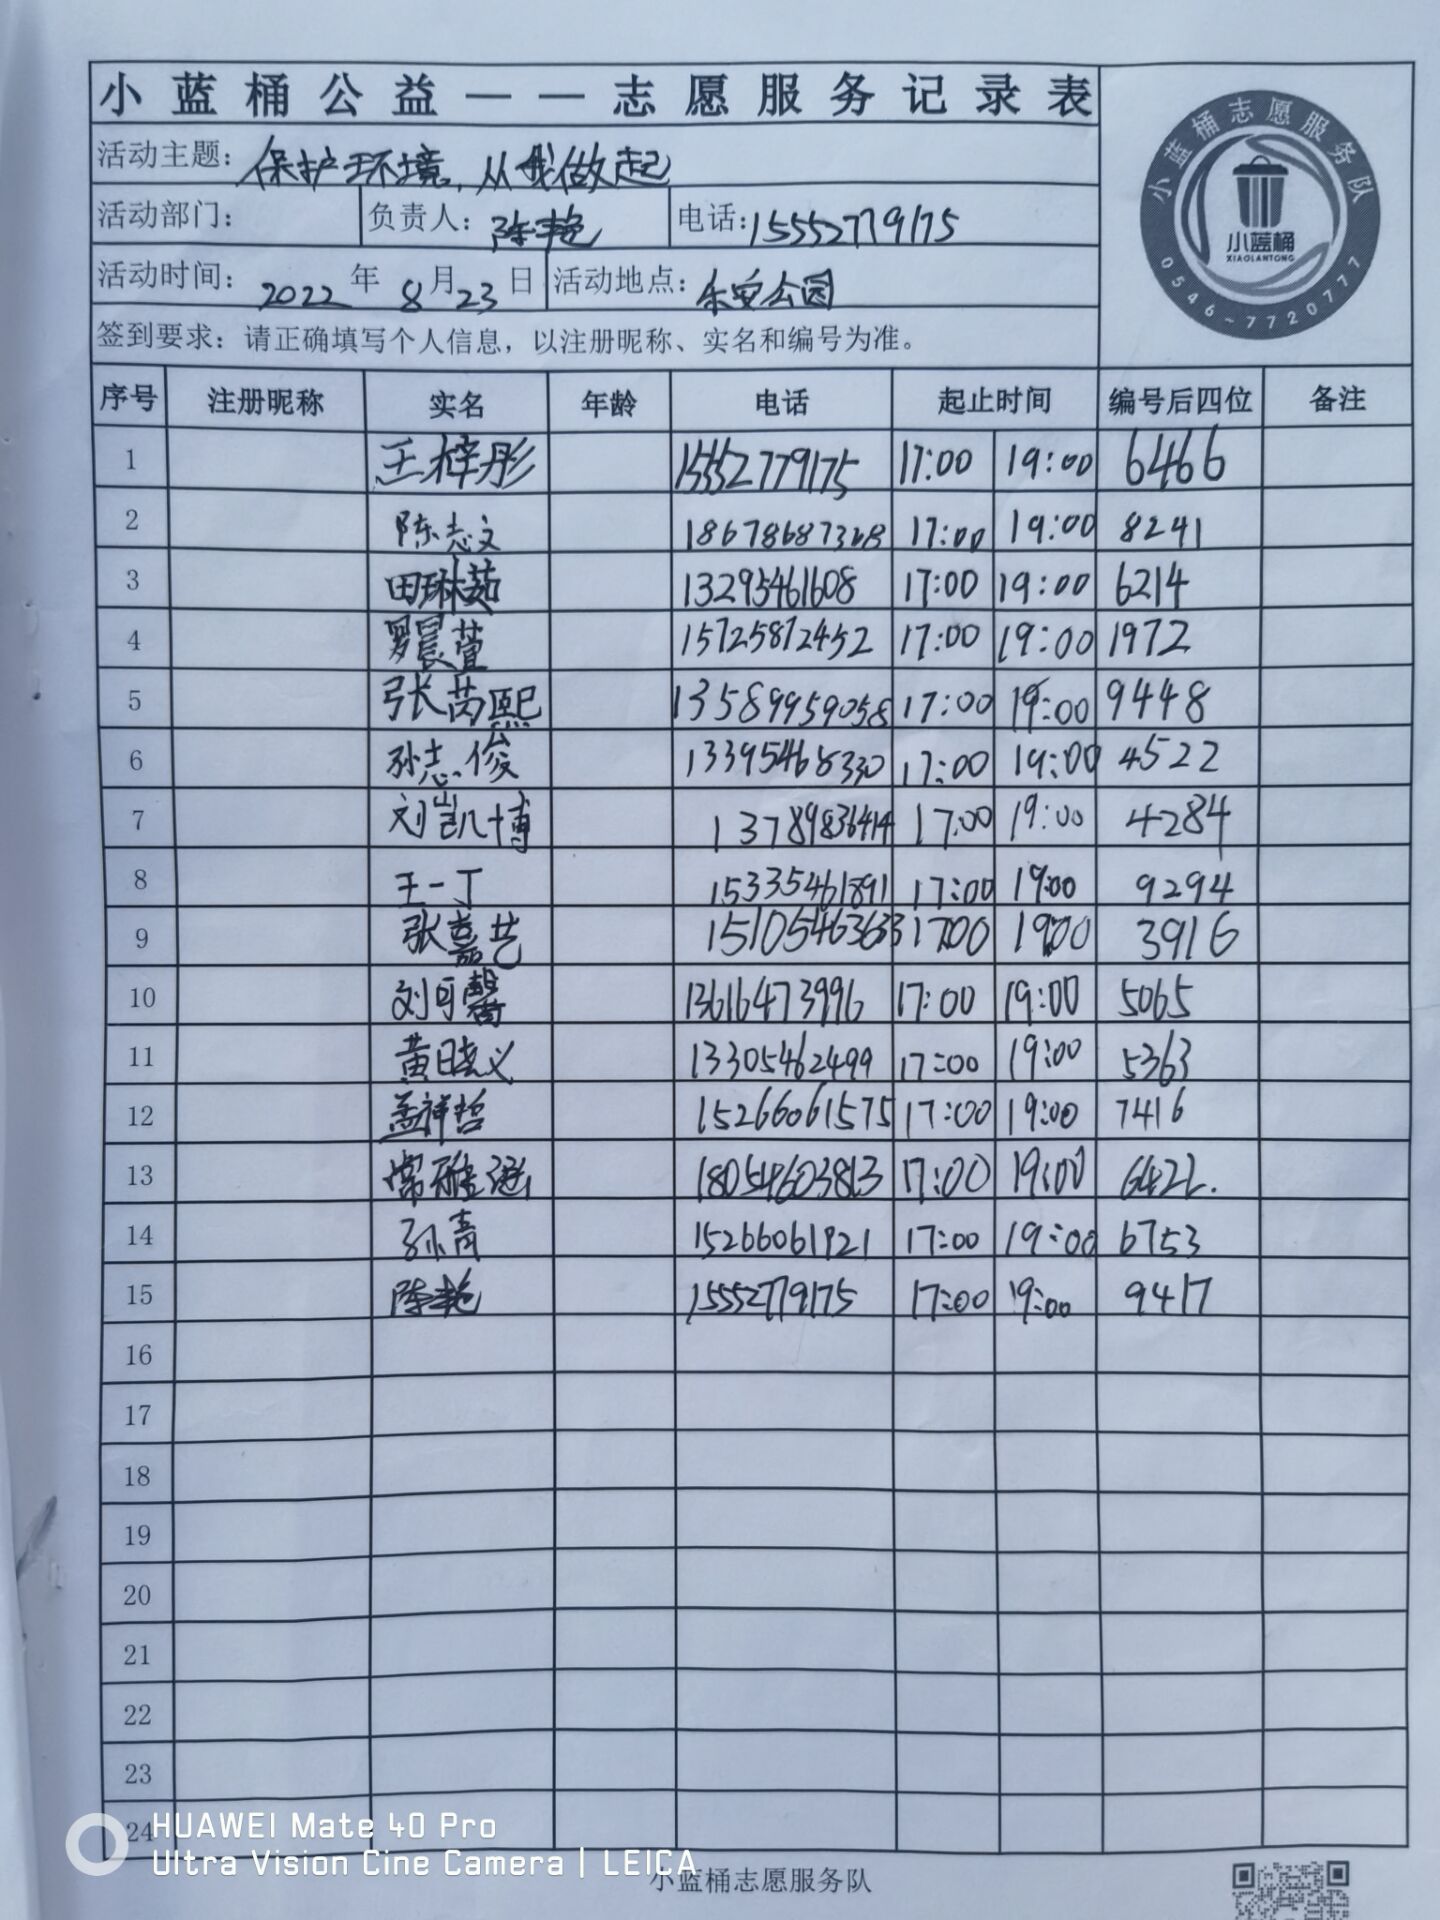 小蓝桶公益——志愿服务记录表
小蓝桶志愿服务队
小蓝桶
XIAOLANTONG
0546-7720777
活动主题：保护环境，从我做起
活动部门： 负责人：陈艳 电话：15552779175
活动时间：2022年8月23日 活动地点：乐安公园
签到要求：请正确填写个人信息，以注册昵称、实名和编号为准。
序号 注册昵称 实名 年龄 电话 起止时间 编号后四位 备注
1 王梓彤 15552779175 17:00 19:00 6466
2 陈志文 18678687328 17:00 19:00 8241
3 田琳茹 13295461608 17:00 19:00 6214
4 晨萱 15725872452 17:00 19:00 1972
5 张芮熙 13589959058 17:00 19:00 9448
6 孙志俊 13395468330 17:00 19:00 4522
7 刘凯博 13789836414 17:00 19:00 4284
8 王一丁 15335461891 17:00 19:00 9294
9 张嘉艺 15105463633 17:00 19:00 3916
10 刘可馨 13616473996 17:00 19:00 5065
11 黄晓义 13305462499 17:00 19:00 5363
12 孟祥哲 15266061575 17:00 19:00 7416
13 常雅涵 18054603813 17:00 19:00 6422.
14 孙青 15266061921 17:00 19:00 6753
15 陈艳 15552779175 17:00 19:00 9417
16
17
18
19
20
21
22
23
24
HUAWEI Mate 40 Pro
Ultra Vision Cine Camera | LEICA
小蓝桶志愿服务队